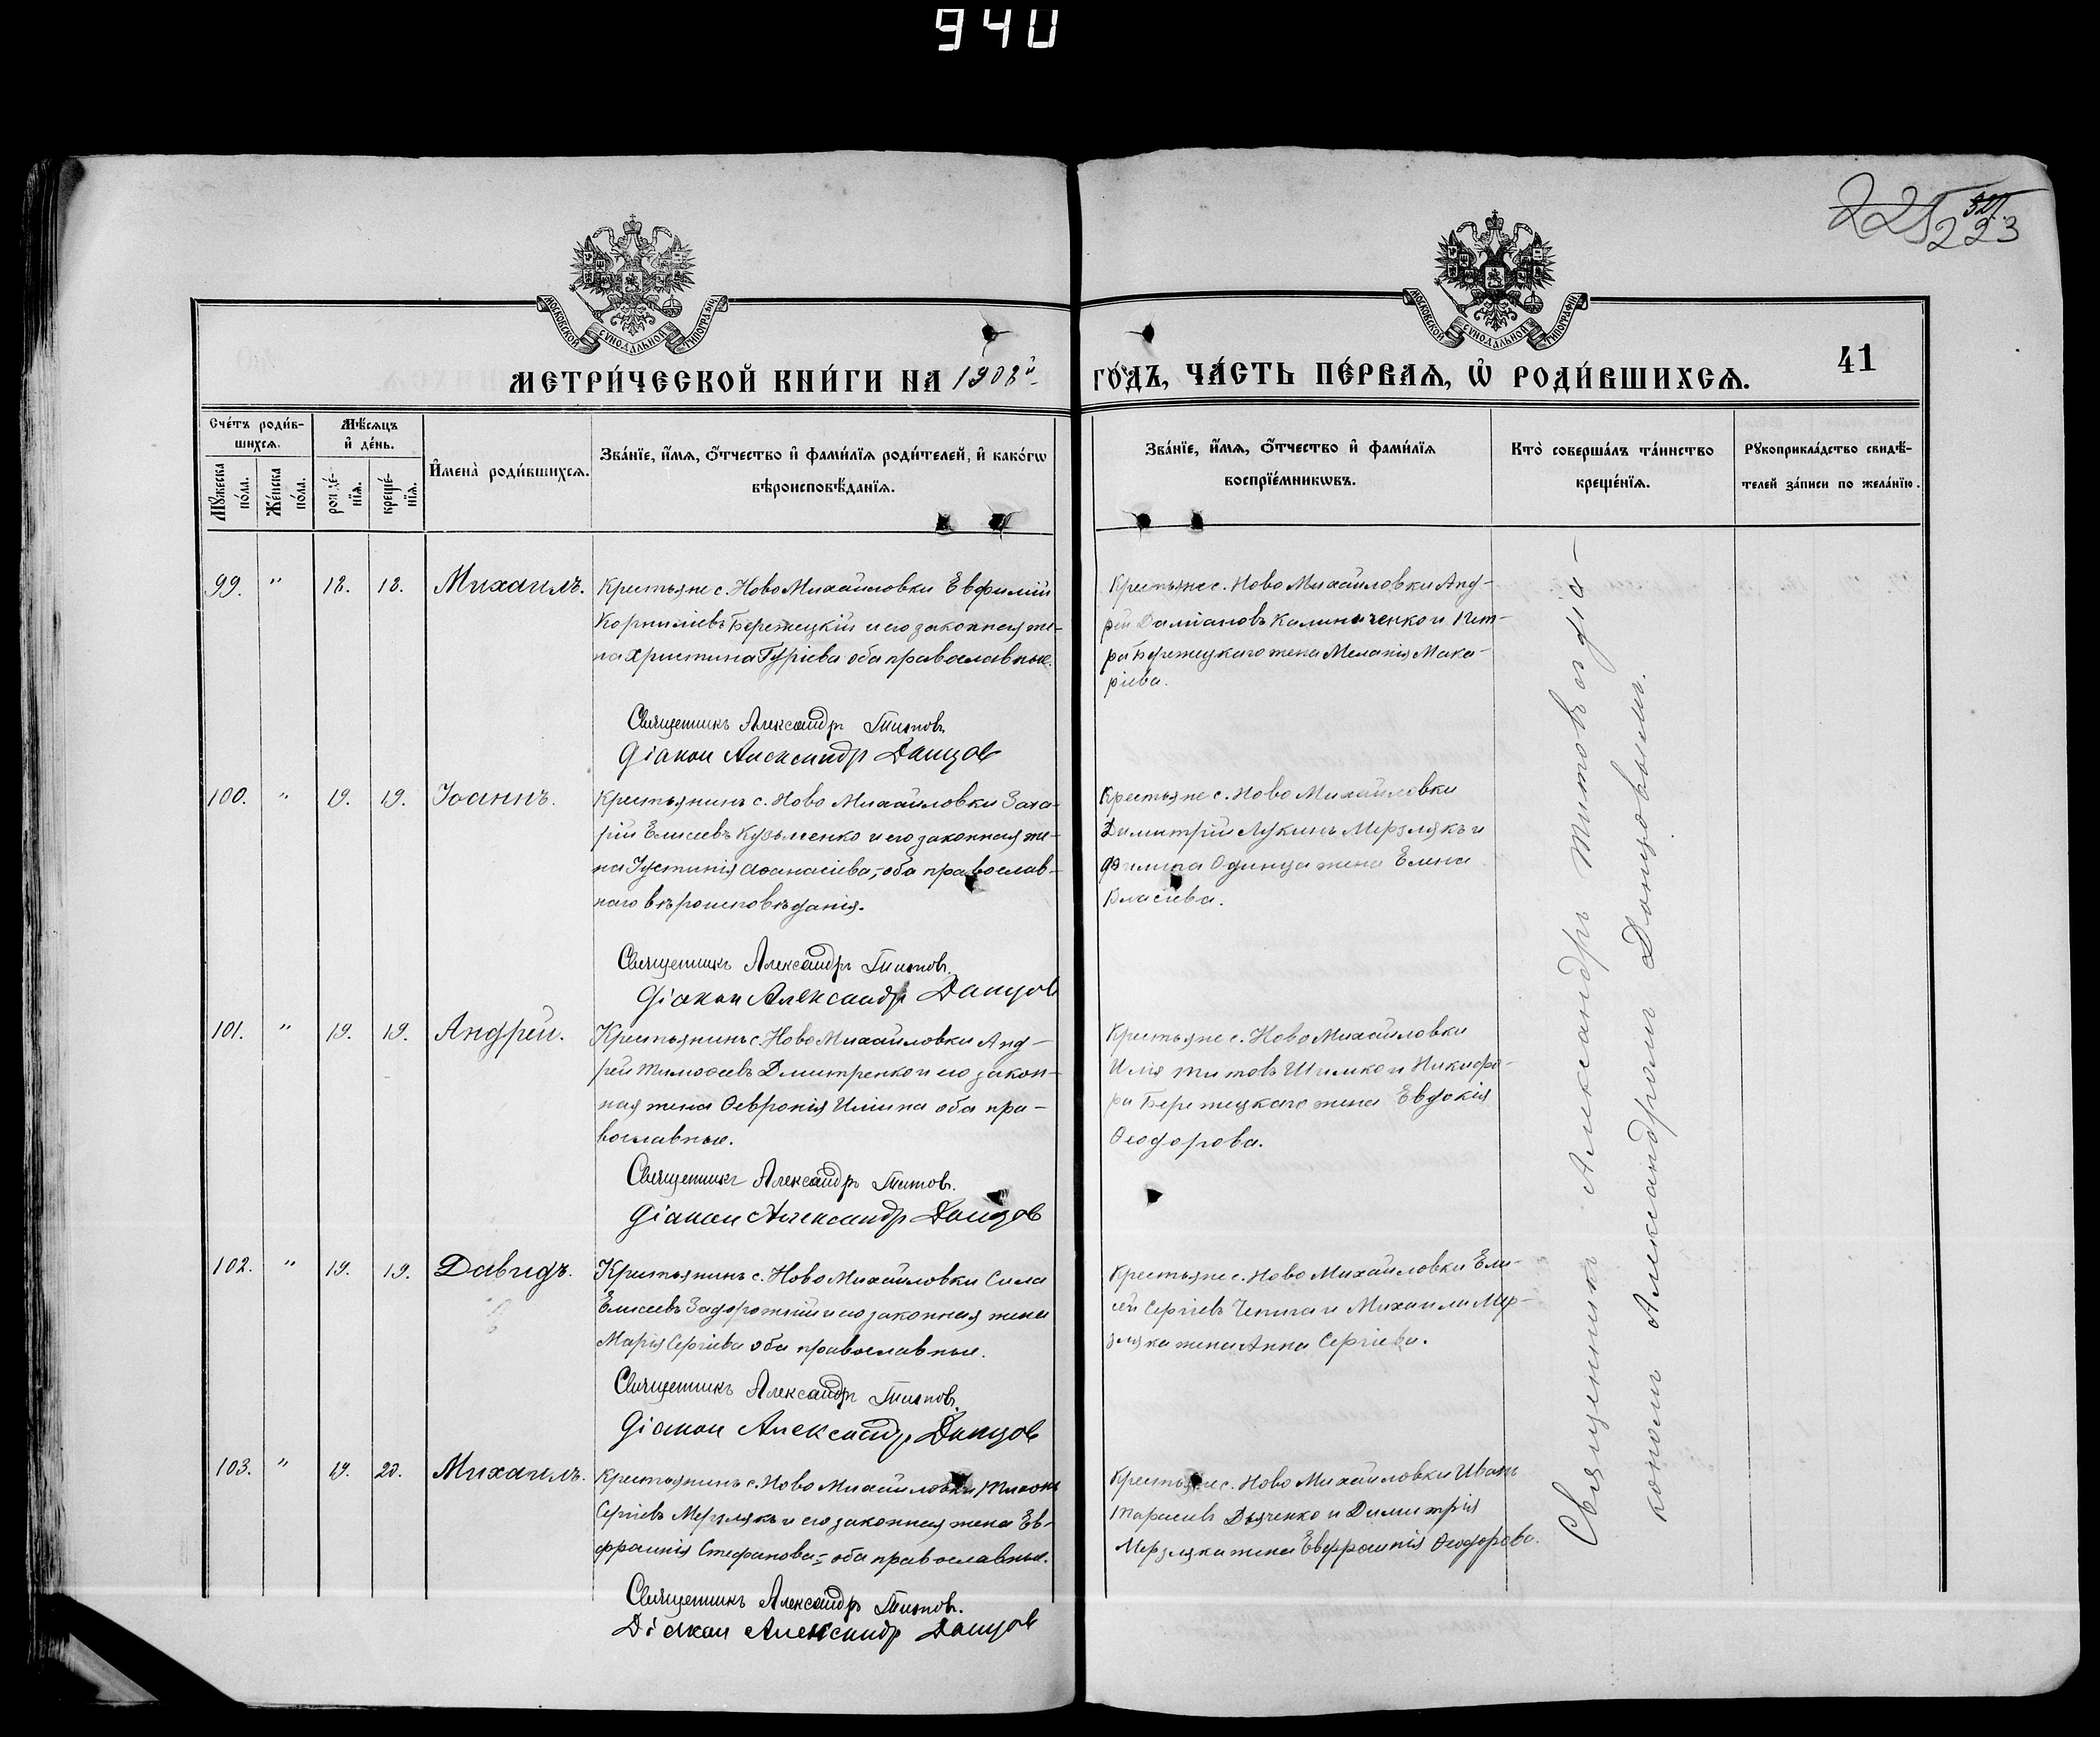 940
225
321
223
МОСКОВСКОЙ СѴНОДАЛЬНОЙ ТИПОГРАФІИ
МОСКОВСКОЙ СѴНОДАЛЬНОЙ ТИПОГРАФІИ
МЕТРИ́ЧЕСКОЙ КНИ́ГИ НА 1908й
ГО́ДЪ, ЧА́СТЬ ПЕ́РВАѦ, Ѡ҆ РОДИ́ВШИХСѦ.
41
Сче́тъ роди́в-
шихсѧ.
Мѣ́сѧцъ
и҆ де́нь.
Мꙋ́жеска
по́ла.
Же́нска
по́ла.
рожде́-
нїѧ.
креще́-
нїѧ.
И҆мена̀ роди́вшихсѧ.
Зва́нїе, и҆́мѧ, ѻ҆́тчество и҆ фами́лїѧ роди́телей, и҆ како́гѡ
вѣроисповѣ́данїѧ.
Зва́нїе, и҆́мѧ, ѻ҆́тчество и҆ фами́лїѧ
воспрїе́мникѡвъ.
Кто̀ соверша́лъ та́инство
креще́нїѧ.
Рꙋкоприкла́дство свидѣ́-
телей за́писи по жела́нїю.
99. " 18. 18. Михаилъ.
Крестьяне с. Ново Михайловки Евфимій
Корниліевъ Бережецкій и его законная же-
на Христина Гуріева оба православные.
Священникъ Александръ Титовъ.
Діакон Александр Данцов
Крестьяне с. Ново Михайловки Анд-
рей Даміановъ Калиниченко и Пет-
ра Бережецкаго жена Меланія Мака-
ріева.
100. " 19. 19. Іоаннъ.
Крестьянинъ с. Ново Михайловки Заха-
рій Елисеевъ Кузьменко и его законная же-
на Іустинія Аѳанасіева, оба православ-
наго вѣроисповѣданія.
Священникъ Александръ Титовъ.
Діакон Александр Данцов
Крестьяне с. Ново Михайловки
Димитрій Лукинъ Мерзлякъ и
Филипа Одинца жена Елена
Власіева.
101. " 19. 19. Андрей.
Крестьянинъ с. Ново Михайловки Анд-
рей Тимоѳеевъ Дмитренко и его закон-
ная жена Ѳевронія Иліина оба пра-
вославные.
Священникъ Александръ Титовъ.
Діакон Александр Данцов
Крестьяне с. Ново Михайловки
Илія Титовъ Шимко и Никифо-
ра Бережецкаго жена Евдокія
Ѳеодорова.
102. " 19. 19. Давидъ.
Крестьянинъ с. Ново Михайловки Сила
Елисеевъ Задорожній и его законная жена
Марія Сергіева оба православные.
Священникъ Александръ Титовъ.
Діакон Александр Данцов
Крестьяне с. Ново Михайловки Ели-
сей Сергіевъ Чепига и Михаила Мер-
зляка жена Анна Сергіева.
103. " 19. 20. Михаилъ.
Крестьянинъ с. Ново Михайловки
Сергіевъ Мерзлякъ и его законная жена Ев-
фросинія Стефанова оба православные.
Священникъ Александръ Титовъ.
Діакон Александр Данцов
Крестьяне с. Ново Михайловки Иванъ
Тарасіевъ Дяченко и Димитрія
Мерзляка жена Евфросинія Ѳеодорова.
Священникъ Александръ Титовъ съ діа-
кономъ Александромъ Донцовымъ.